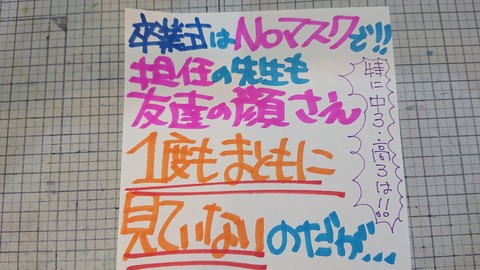 卒業式はNoマスクで!!
担任の先生も
友達の顔さえ
1度もまともに
見ていない のだが...
特に中3・高3は!!